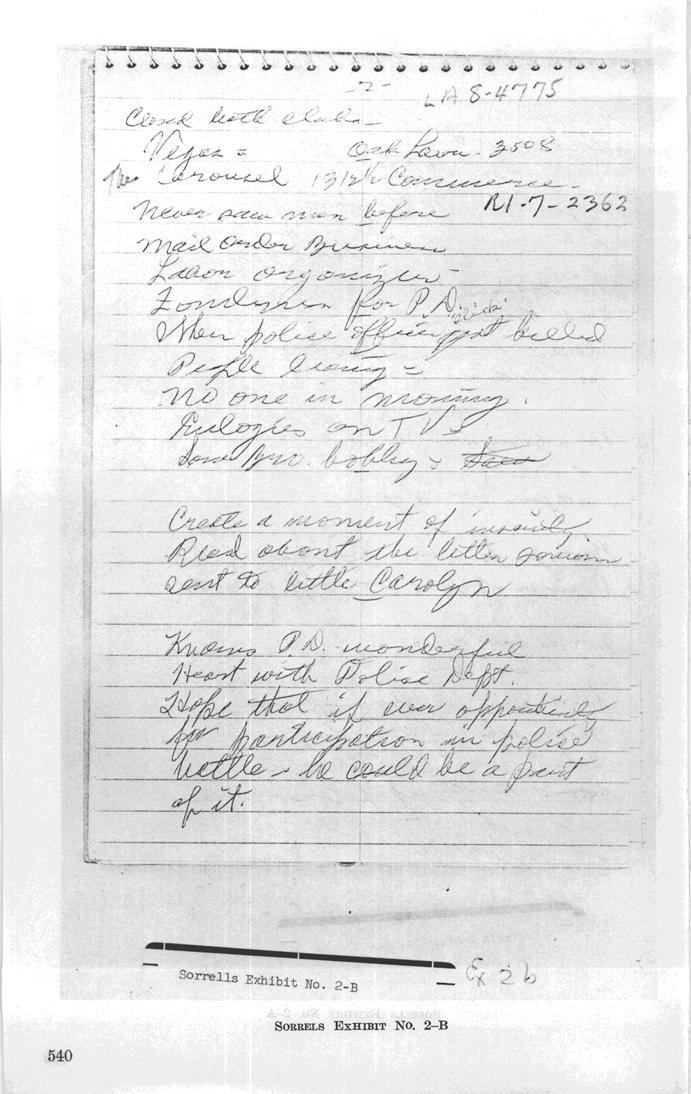 -2-
LA 8-4775
Closed both clubs -
Vegas = Oak Lawn - 3508
The Carousel 1312½ Commerce -
Never saw man before RI-7-2362
Mail Order Business
Labor organizer -
Fondness for P.D.
When police officer got killed
People
No one in mourning.
Eulogies on TVs
Saw Bro. Bobby -
Create a moment of insanity
Read about the letter someone
sent to little Carolyn
Knows P.D. wonderful
Heart with Police Dept.
Hope that if ever opportunity
for participation in police
battle - he could be a part
of it.
Sorrells Exhibit No. 2-B
Ex 2b
SORRELS EXHIBIT NO. 2–B
540